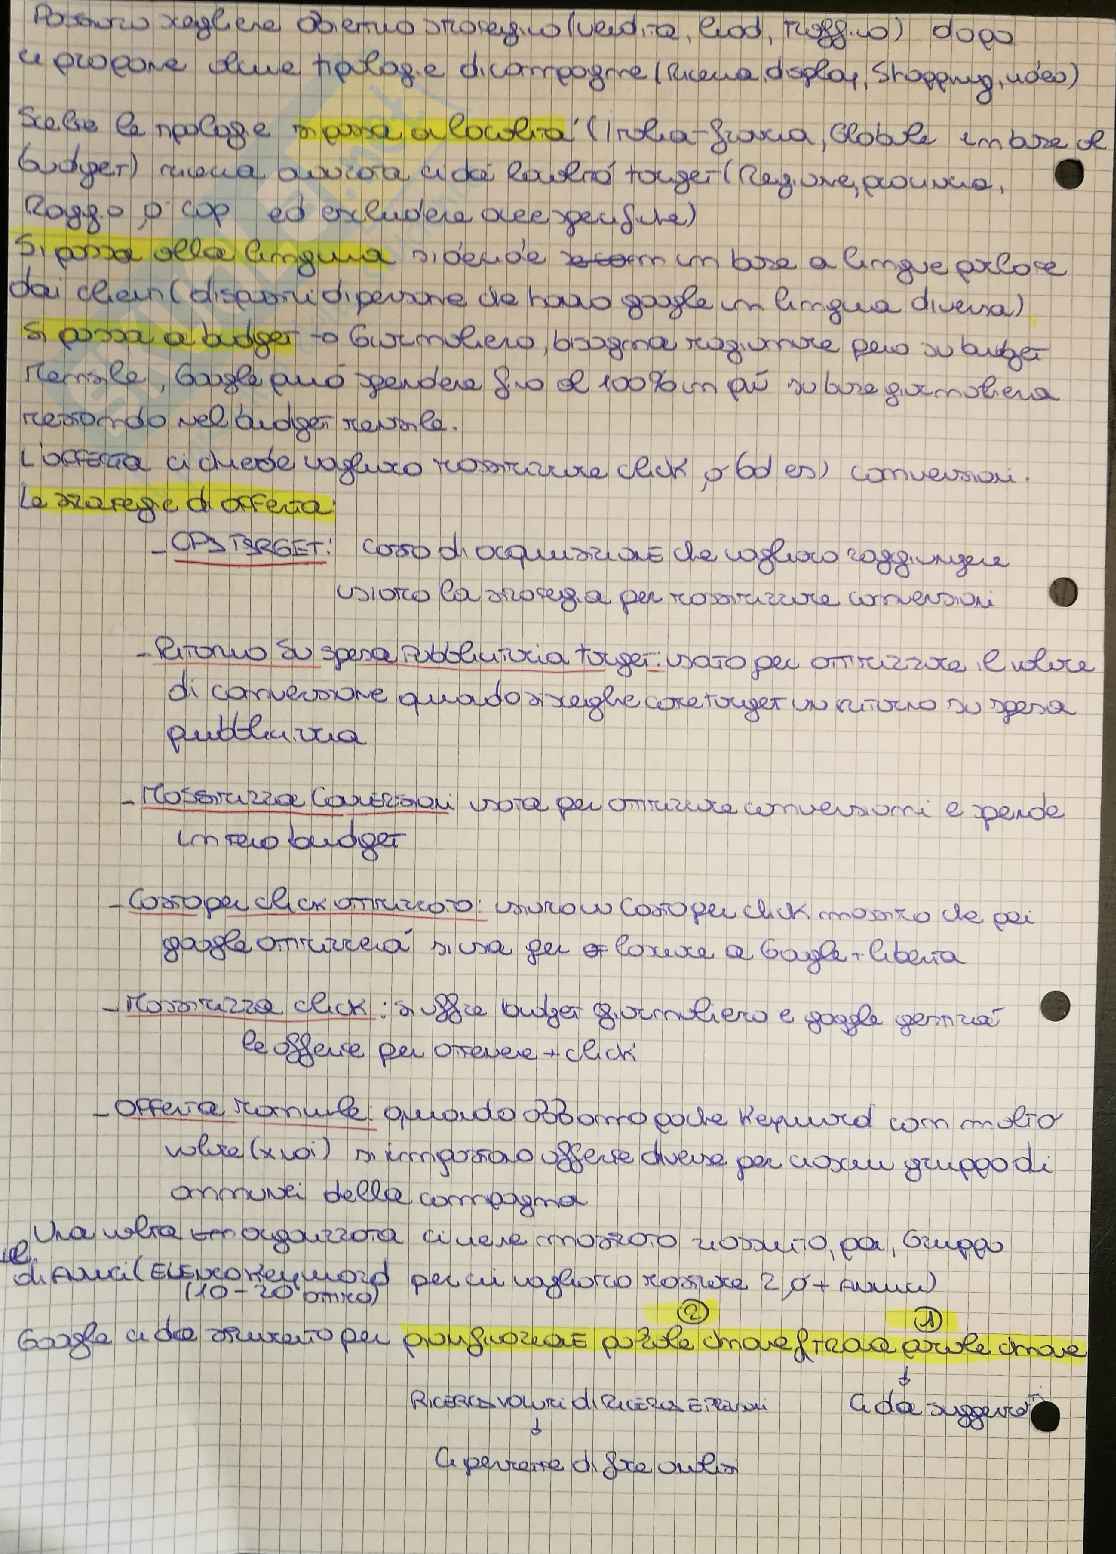 Possiamo scegliere obiettivo strategico (vendita, lead, traffico) dopo
ci propone alcune tipologie di campagne (Ricerca, display, Shopping, video)
Scelte le tipologie si passa a località (India-Francia, Globale in base al
budget) ricerca avanzata ci dà località target (Regione, provincia,
Raggio, o cap ed escludere aree specifiche)
Si passa alla lingua si decide in base a lingue parlate
dai clienti (dispositivi di persone che hanno google in lingua diversa)
Si passa a budget → Giornaliero, bisogna ragionare però su budget
Mensile, Google può spendere fino al 100% in più su base giornaliera
restando nel budget mensile.
L'offerta ci chiede vogliamo massimizzare click, o (ad es) conversioni.
Le strategie di offerta:
- CPA TARGET: costo di acquisizione che vogliamo raggiungere
usiamo la strategia per massimizzare conversioni
- Ritorno su spesa pubblicitaria target: usato per ottimizzare il valore
di conversione quando si sceglie come target un ritorno su spesa
pubblicitaria
- Massimizza Conversioni usata per ottimizzare conversioni e spende
intero budget
- Costo per click ottimizzato: usiamo un costo per click massimo che poi
google ottimizzerà si usa per lasciare a Google + libertà
- Massimizza click: si offre budget giornaliero e google gestirà
le offerte per ottenere + click
- Offerta manuale: quando abbiamo poche Keyword con molto
valore (x noi) si impostano offerte diverse per ciascun gruppo di
annunci della campagna
Una volta organizzata ci viene mostrato riassunto, poi, Gruppo
di Annunci (ELENCO Keyword per cui vogliamo mostrare 1, o + annunci)
(10-20 ottimo)
Google ci dà strumento per pianificazione parole chiave & trova parole chiave
② ①
Ricerca volumi di ricerca e previsioni Ci dà suggerimenti
↓
Ci permette di fare analisi